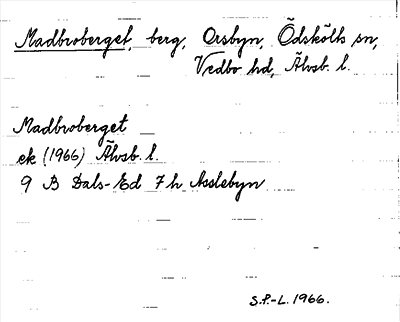 Madbroberget, berg, Orsbyn, Ödskölts sn,
Vedbo hd, Älvsb. l.
Madbroberget
ek (1966) Älvsb. l.
9 B Dals-Ed 7 h Asslebyn
S.P.-L. 1966.